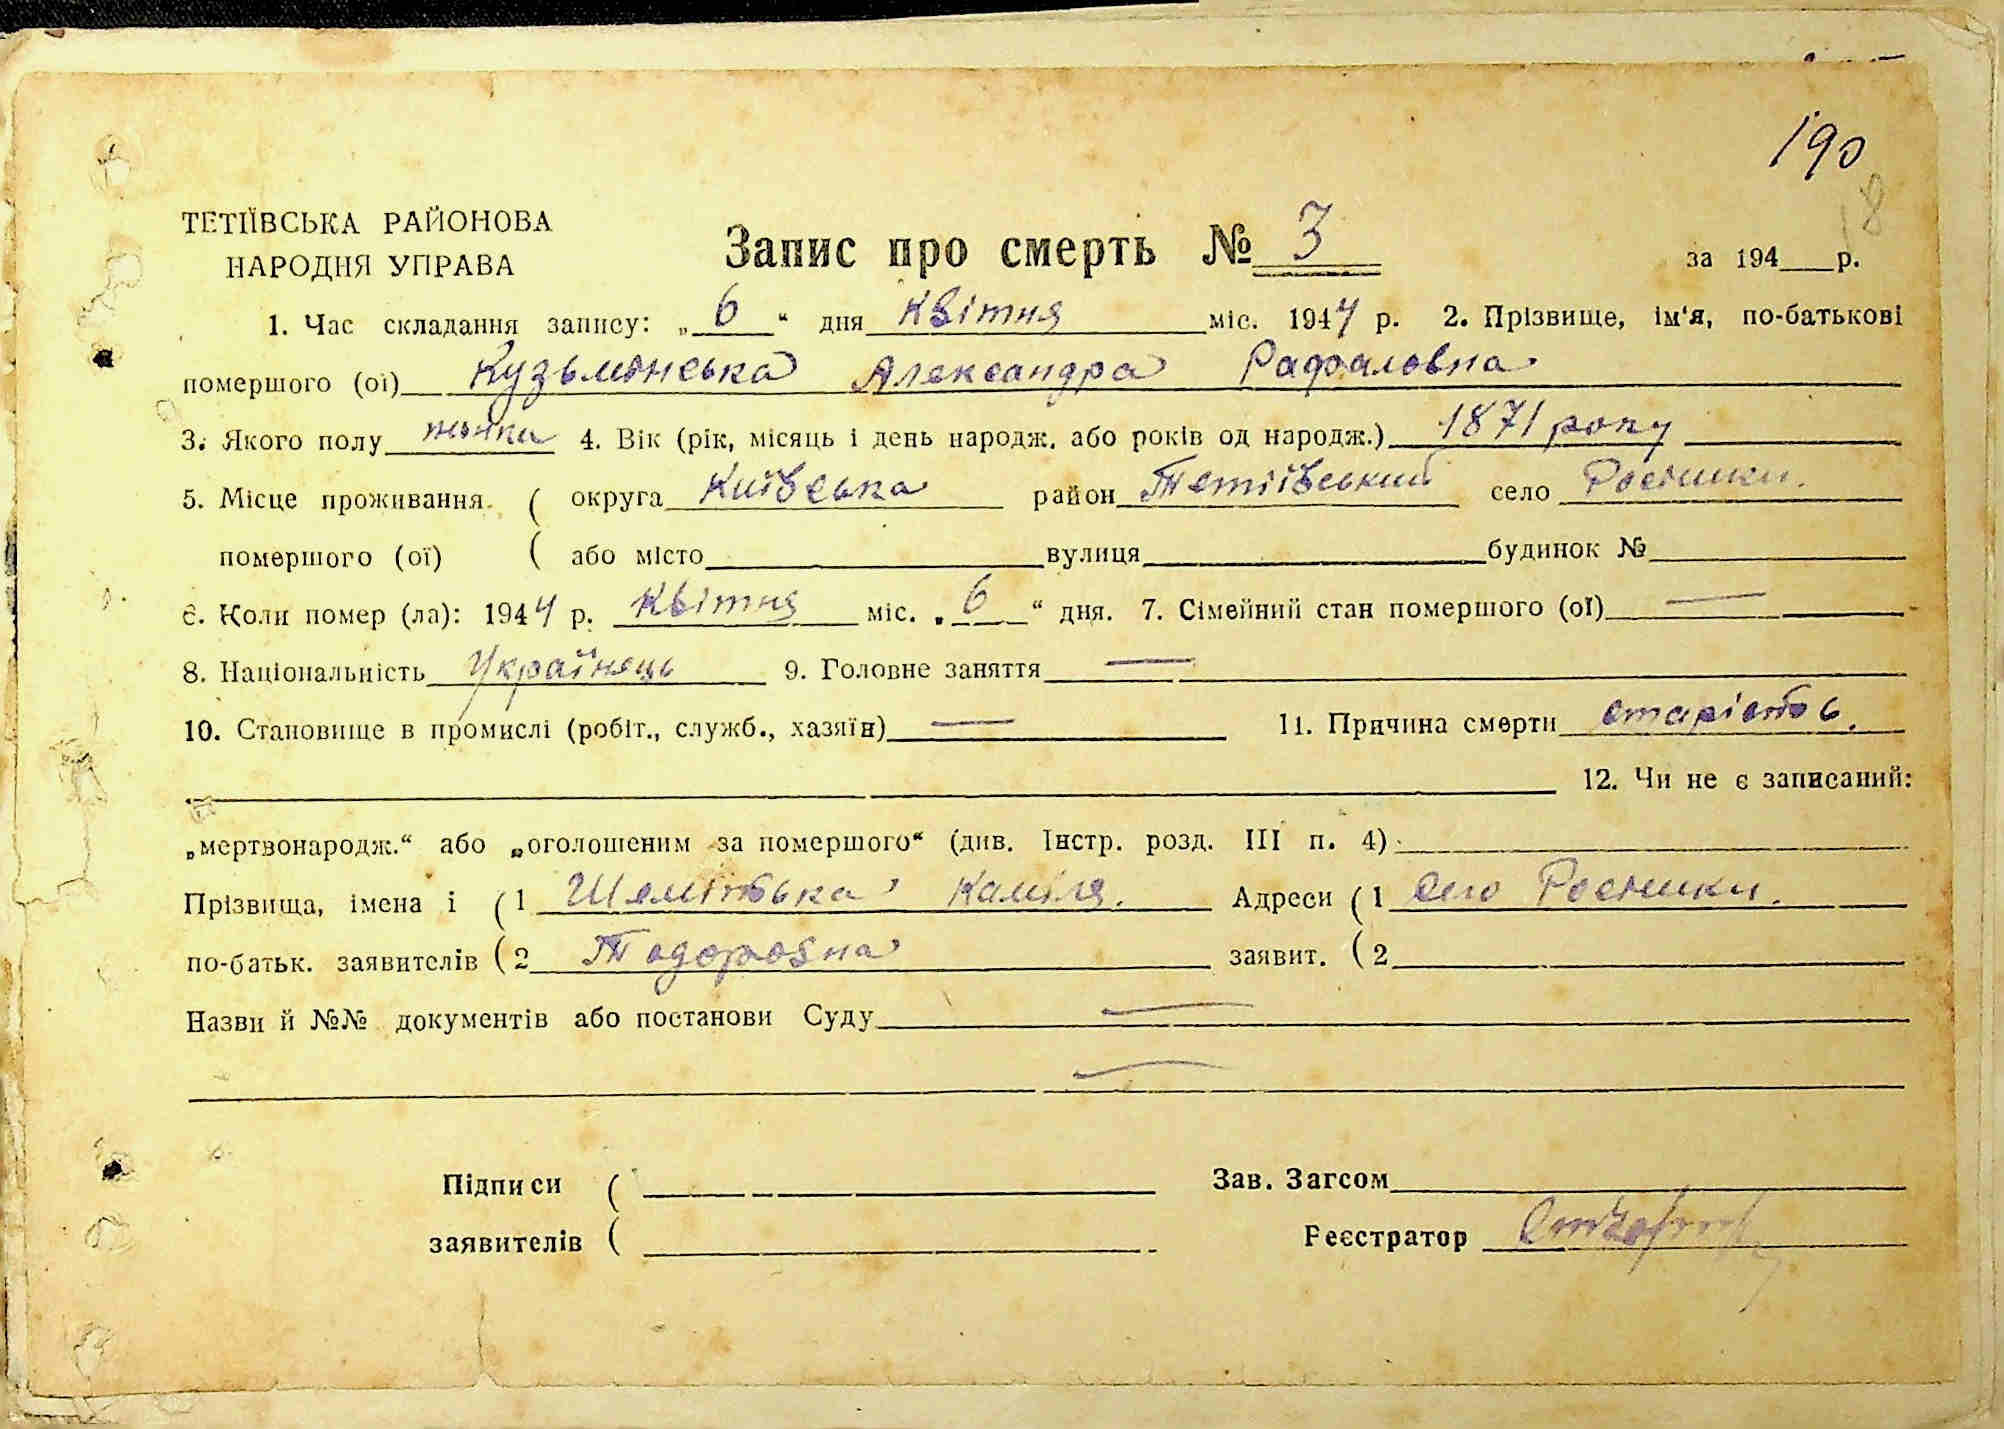 190
18
ТЕТІЇВСЬКА РАЙОНОВА
НАРОДНЯ УПРАВА
Запис про смерть № 3
за 194 р.
1. Час складання запису: „ 6 “ дня Квітня міс. 1944 р. 2. Прізвище, ім'я, по-батькові
помершого (ої) Кузьмінська Александра Рафаловна
3. Якого полу жінки 4. Вік (рік, місяць і день народж. або років од народж.) 1871 року
5. Місце проживання ( округа Київська район Тетіївський село Росішки.
помершого (ої) ( або місто вулиця будинок №
6. Коли помер (ла): 1944 р. Квітня міс. „ 6 “ дня. 7. Сімейний стан помершого (ої) —
8. Національність Українець 9. Головне заняття —
10. Становище в промислі (робіт., служб., хазяїн) — 11. Причина смерти старість.
12. Чи не є записаний:
„мертвонародж.“ або „оголошеним за помершого“ (див. Інстр. розд. III п. 4)
Прізвища, імена і ( 1 Каміля. Адреси ( 1 село Росішки.
по-батьк. заявителів ( 2 Тодоровна заявит. ( 2
Назви й №№ документів або постанови Суду —
—
Підписи ( Зав. Загсом
заявителів ( Реєстратор